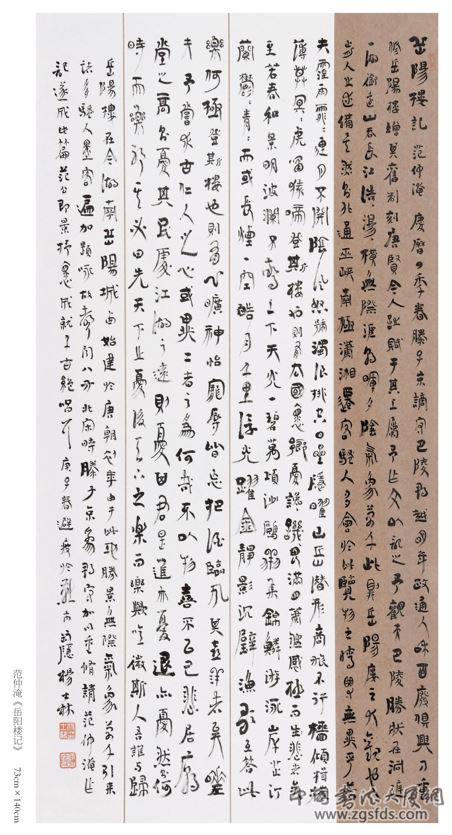 岳陽樓記 范仲淹 慶曆四年春滕子京謫守巴陵郡越明年政通人和百廢俱興乃重
修岳陽樓增其舊制刻唐賢今人詩賦于其上屬予作文以記之予觀夫巴陵勝狀在洞庭
一湖銜遠山吞長江浩浩湯湯橫無際涯朝暉夕陰氣象萬千此則岳陽樓之大觀也前
人之述備矣然則北通巫峽南極瀟湘遷客騷人多會於此覽物之情得無異乎若
夫霪雨霏霏連月不開陰風怒號濁浪排空日星隱曜山岳潛形商旅不行檣傾楫摧
薄暮冥冥虎嘯猿啼登斯樓也則有去國懷鄉憂讒畏譏滿目蕭然感極而悲者矣
至若春和景明波瀾不驚上下天光一碧萬頃沙鷗翔集錦鱗游泳岸芷汀
蘭鬱鬱青青而或長煙一空皓月千里浮光躍金靜影沉璧漁歌互答此
樂何極登斯樓也則有心曠神怡寵辱皆忘把酒臨風其喜洋洋者矣嗟
夫予嘗求古仁人之心或異二者之為何哉不以物喜不以己悲居廟
堂之高則憂其民處江湖之遠則憂其君是進亦憂退亦憂然則何
時而樂耶其必曰先天下之憂後天下之樂而樂歟噫微斯人吾誰與歸
岳陽樓在今湖南岳陽城西始建於唐朝年由于此地勝景無際氣象萬千引來
諸多騷人墨客遍加題咏故聞八方北宋時滕子京為郡守加以重修請范仲淹作
記遂成此篇范公即景抒意成就了古絕唱耳 庚子春避疫於 楊士林
范仲淹《岳阳楼记》 73cm×140cm
中国书法大厦网
www.zgsfds.com